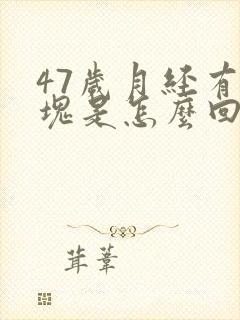 47歲月经有
塊是怎麼回
茸葦